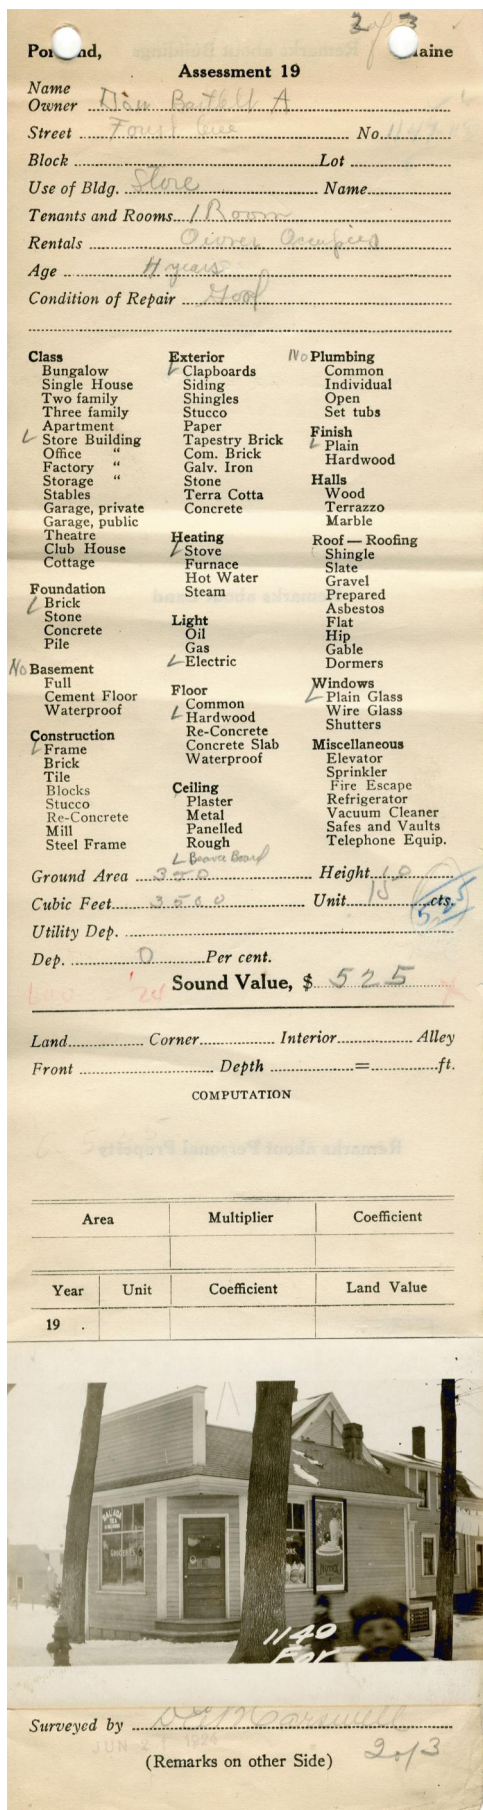 2 of 3
Portland, Maine
Assessment 19
Name
Owner Bartlett A
Street Forest Ave No.
Block Lot
Use of Bldg. Store Name
Tenants and Rooms 1 Room
Rentals Owner Occupied
Age 4 years
Condition of Repair Good
Class
Bungalow
Single House
Two family
Three family
Apartment
✓ Store Building
Office "
Factory "
Storage "
Stables
Garage, private
Garage, public
Theatre
Club House
Cottage
Foundation
✓ Brick
Stone
Concrete
Pile
No Basement
Full
Cement Floor
Waterproof
Construction
✓ Frame
Brick
Tile
Blocks
Stucco
Re-Concrete
Mill
Steel Frame
Exterior
✓ Clapboards
Siding
Shingles
Stucco
Paper
Tapestry Brick
Com. Brick
Galv. Iron
Stone
Terra Cotta
Concrete
Heating
✓ Stove
Furnace
Hot Water
Steam
Light
Oil
Gas
✓ Electric
Floor
Common
✓ Hardwood
Re-Concrete
Concrete Slab
Waterproof
Ceiling
Plaster
Metal
Panelled
Rough
✓ Beaver Board
No Plumbing
Common
Individual
Open
Set tubs
Finish
✓ Plain
Hardwood
Halls
Wood
Terrazzo
Marble
Roof — Roofing
Shingle
Slate
Gravel
Prepared
Asbestos
Flat
Hip
Gable
Dormers
Windows
✓ Plain Glass
Wire Glass
Shutters
Miscellaneous
Elevator
Sprinkler
Fire Escape
Refrigerator
Vacuum Cleaner
Safes and Vaults
Telephone Equip.
Ground Area 350 Height 10
Cubic Feet 3500 Unit 15 cts.
525
Utility Dep.
Dep. 0 Per cent.
'24
Sound Value, $ 525
Land Corner Interior Alley
Front Depth = ft.
COMPUTATION
Area Multiplier Coefficient
Year Unit Coefficient Land Value
19 .
SALADA
TEA
GROCERIES
1140
For
Surveyed by
JUN 21 1924
(Remarks on other Side)
2 of 3